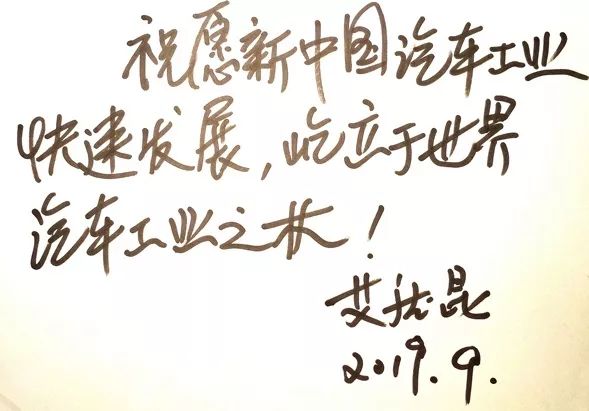 祝愿新中国汽车工业
快速发展,屹立于世界
汽车工业之林!
艾 昆
2019.9.